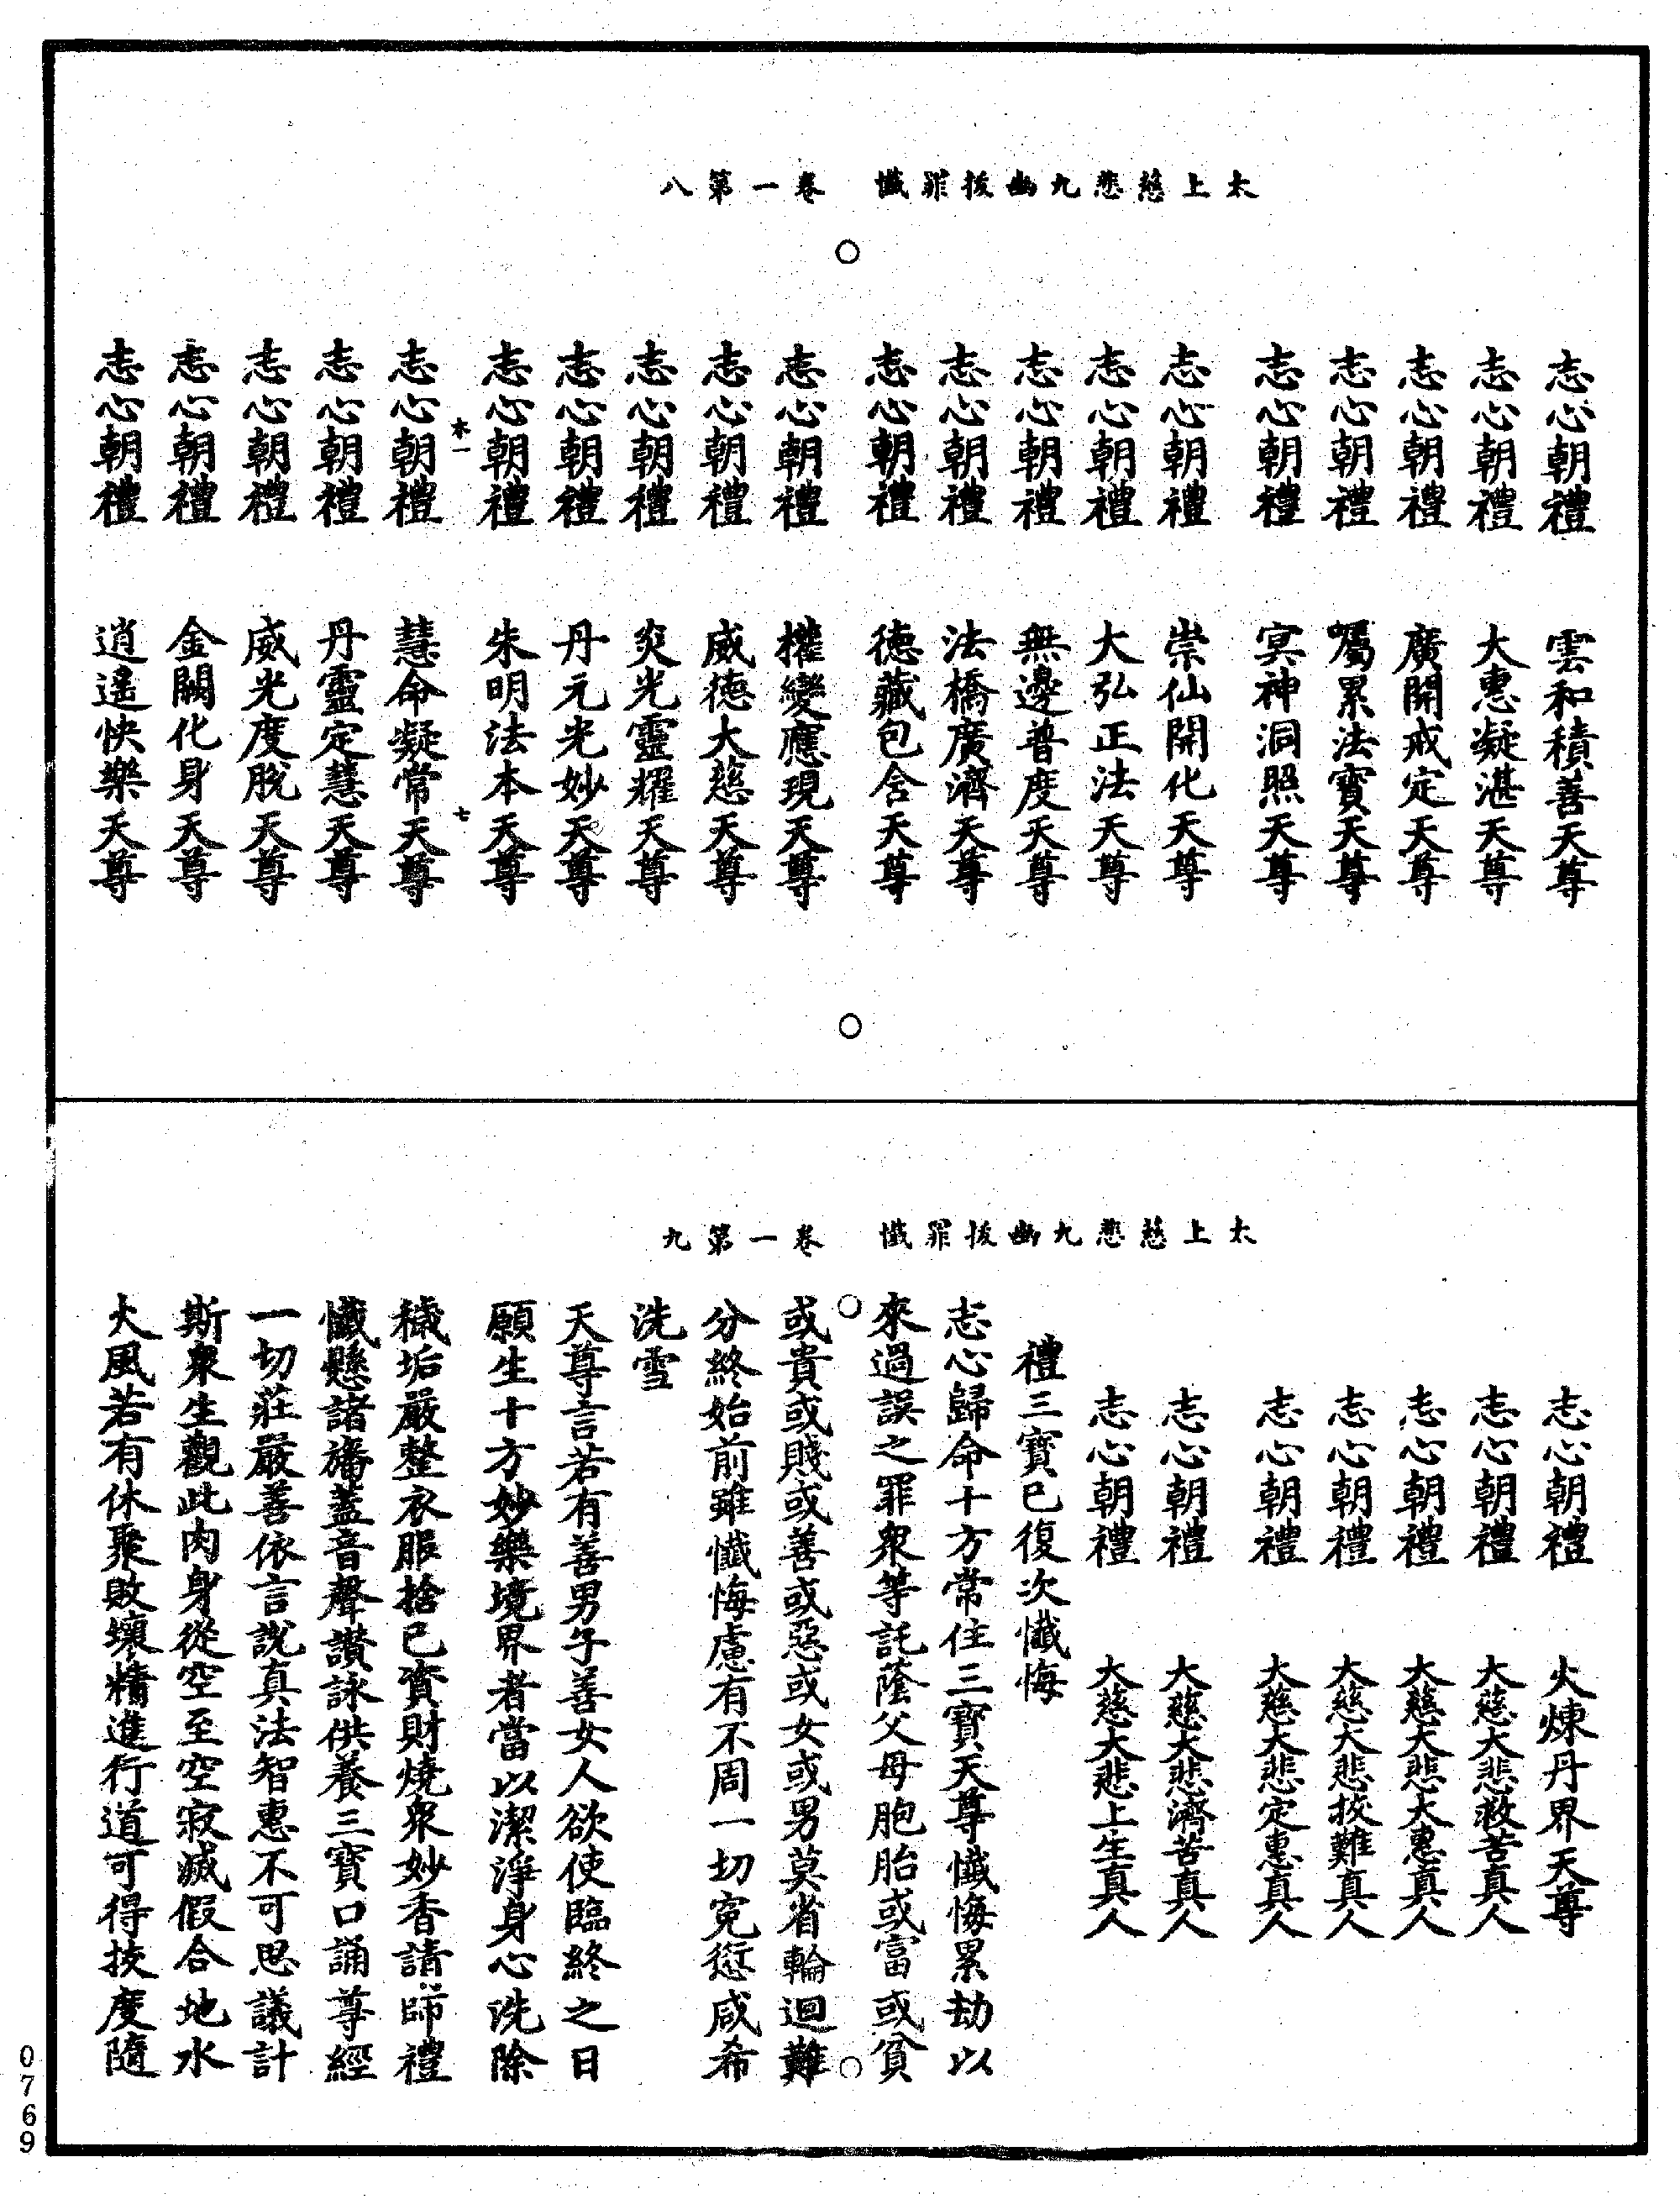 太上慈悲九幽拔罪懺　卷一第八
志心朝禮　雲和積善天尊
志心朝禮　大惠凝湛天尊
志心朝禮　廣開戒定天尊
志心朝禮　囑累法寶天尊
志心朝禮　冥神洞照天尊
志心朝禮　崇仙開化天尊
志心朝禮　大弘正法天尊
志心朝禮　無邊普度天尊
志心朝禮　法橋廣濟天尊
志心朝禮　德藏包含天尊
志心朝禮　權變應現天尊
志心朝禮　威德大慈天尊
志心朝禮　炎光靈耀天尊
志心朝禮　丹元光妙天尊
志心朝禮　朱明法本天尊
木一　七
志心朝禮　慧命凝常天尊
志心朝禮　丹靈定慧天尊
志心朝禮　威光度脫天尊
志心朝禮　金闕化身天尊
志心朝禮　逍遙快樂天尊
太上慈悲九幽拔罪懺　卷一第九
志心朝禮　火煉丹界天尊
志心朝禮　大慈大悲救苦真人
志心朝禮　大慈大悲大惠真人
志心朝禮　大慈大悲拔難真人
志心朝禮　大慈大悲定惠真人
志心朝禮　大慈大悲濟苦真人
志心朝禮　大慈大悲上生真人
禮三寶已復次懺悔
志心歸命十方常住三寶天尊懺悔累劫以
來過誤之罪衆等託蔭父母胞胎或富或貧
或貴或賤或善或惡或女或男莫省輪迴難
分終始前雖懺悔慮有不周一切寃愆咸希
洗雪
天尊言若有善男子善女人欲使臨終之日
願生十方妙樂境界者當以潔淨身心洗除
穢垢嚴整衣服捨己資財燒衆妙香請師禮
懺懸諸旛蓋音聲讚詠供養三寶口誦尊經
一切莊嚴善依言說真法智惠不可思議計
斯衆生觀此肉身從空至空寂滅假合地水
火風若有休聚敗壞精進行道可得拔度隨
0769